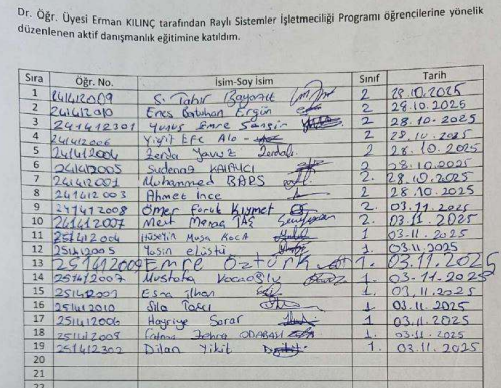 Dr. Öğr. Üyesi Erman KILINÇ tarafından Raylı Sistemler İşletmeciliği Programı öğrencilerine yönelik
düzenlenen aktif danışmanlık eğitimine katıldım.
Sıra Öğr. No. İsim-Soy isim Sınıf Tarih
1 241412009 S. Tahir 2 28.10.2025
2 241412010 Enes Batuhan Ergün 2 28.10.2025
3 241412301 Yunus Emre 2 28.10.2025
4 241412006 Yiğit Efe 2 28.10.2025
5 241412004 Zerda Yavuz 2 28.10.2025
6 241412005 Sudenaz 2 28.10.2025
7 241412001 Muhammed 2. 28.10.2025
8 241412003 Ahmet İnce 2 28.10.2025
9 241412008 Ömer Faruk Kıymet 2. 03.11.2025
10 241412007 Mert 2. 03.11.2025
11 251412004 Hüseyin Musa Koca 1 03.11.2025
12 251412005 Yasin 1 03.11.2025
13 251412009 Emre Öztürk 1. 03.11.2025
14 251412007 Mustafa 1. 03.11.2025
15 Esma İlhan 1. 03.11.2025
16 251412010 Sıla 1. 03.11.2025
17 251412006 Hayriye 1. 03.11.2025
18 Fatma Zehra ODABAŞI 1. 03.11.2025
19 251412302 Dilan Yiğit 1. 03.11.2025
20
21
22